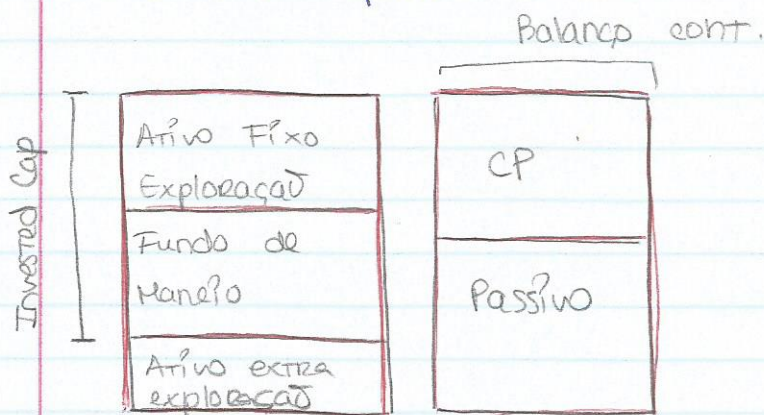 Balanço cont.
Invested Cap
Ativo Fixo
Exploração
Fundo de
Maneio
Ativo extra
exploração
CP
Passivo